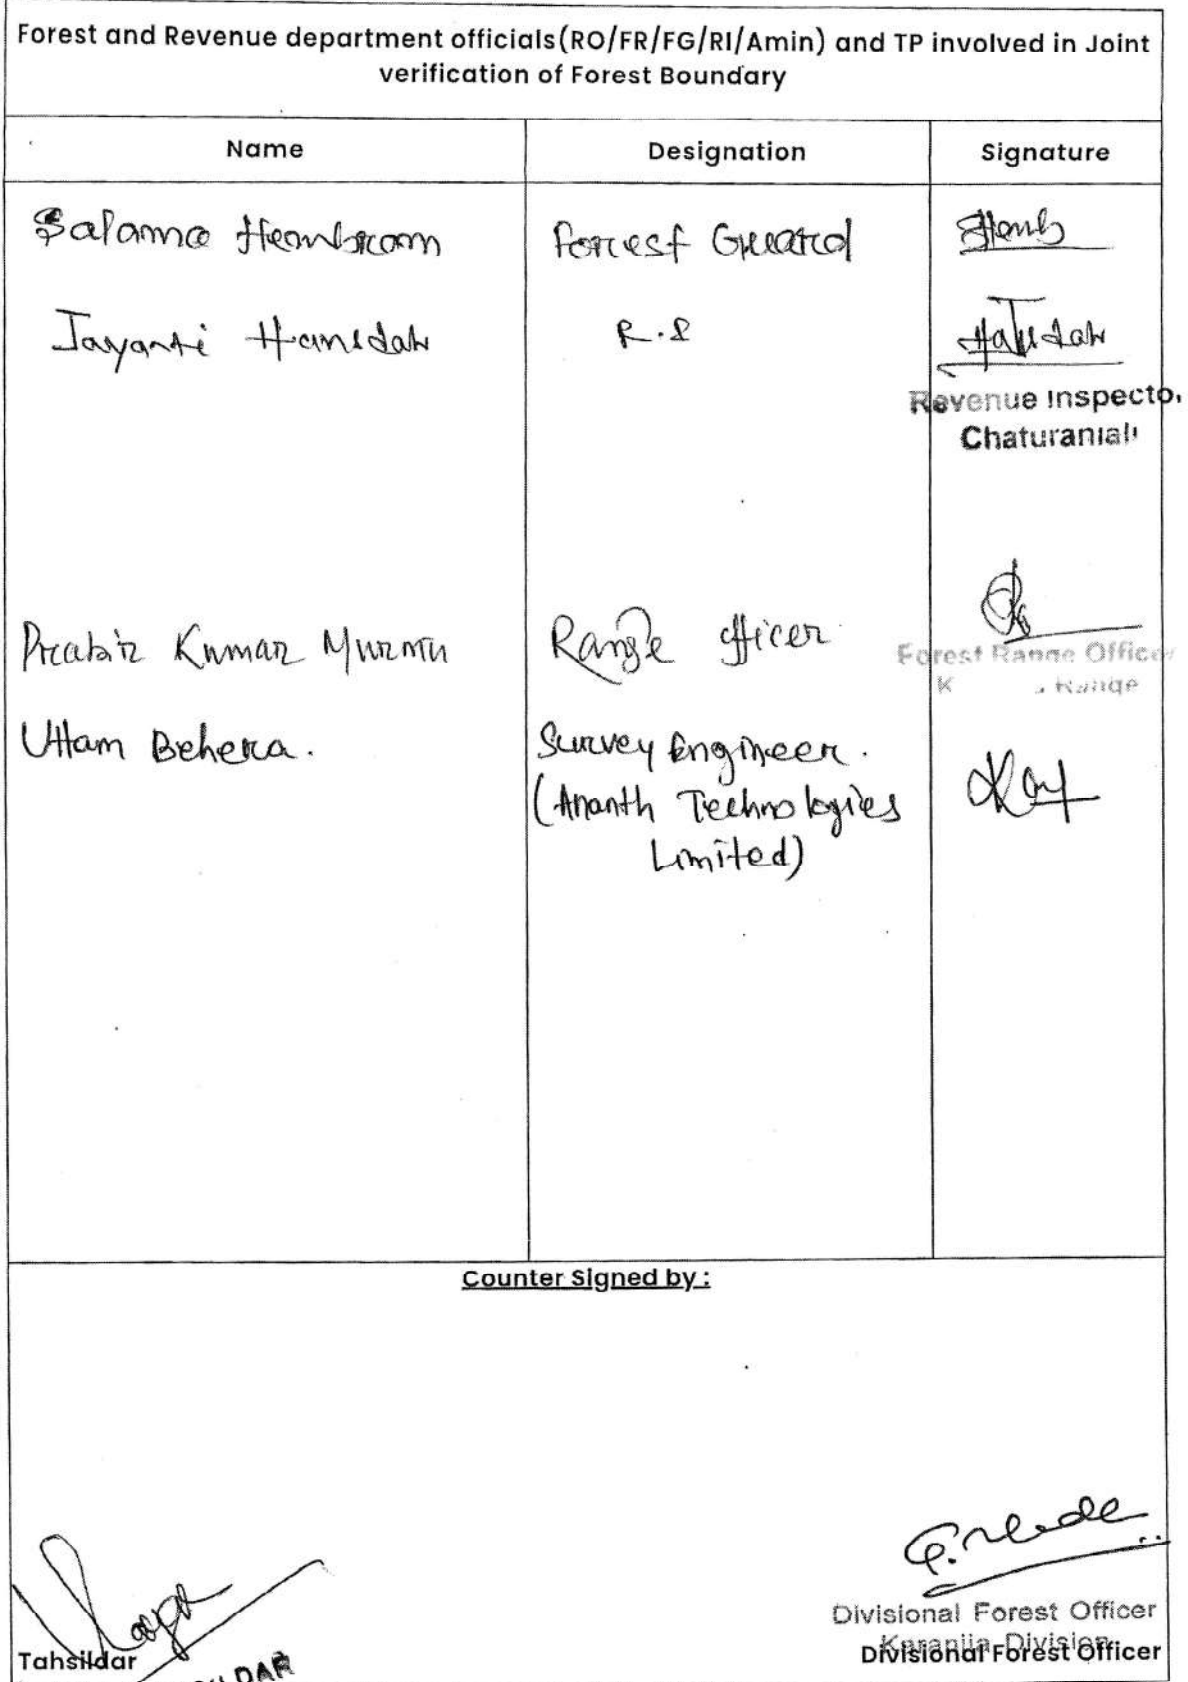 Forest and Revenue department officials(RO/FR/FG/RI/Amin) and TP involved in Joint
verification of Forest Boundary
Name Designation Signature
Salama Hembram Forest Guard
Jayanti Hansdah R.I
Revenue Inspecto
Chaturanjali
Prabir Kumar Murmu Range Officer
Forest Range Office
K Range
Uttam Behera. Survey Engineer.
(Ananth Technologies
Limited)
Counter Signed by :
Divisional Forest Officer
Karanjia Division
Tahsildar Divisional Forest Officer